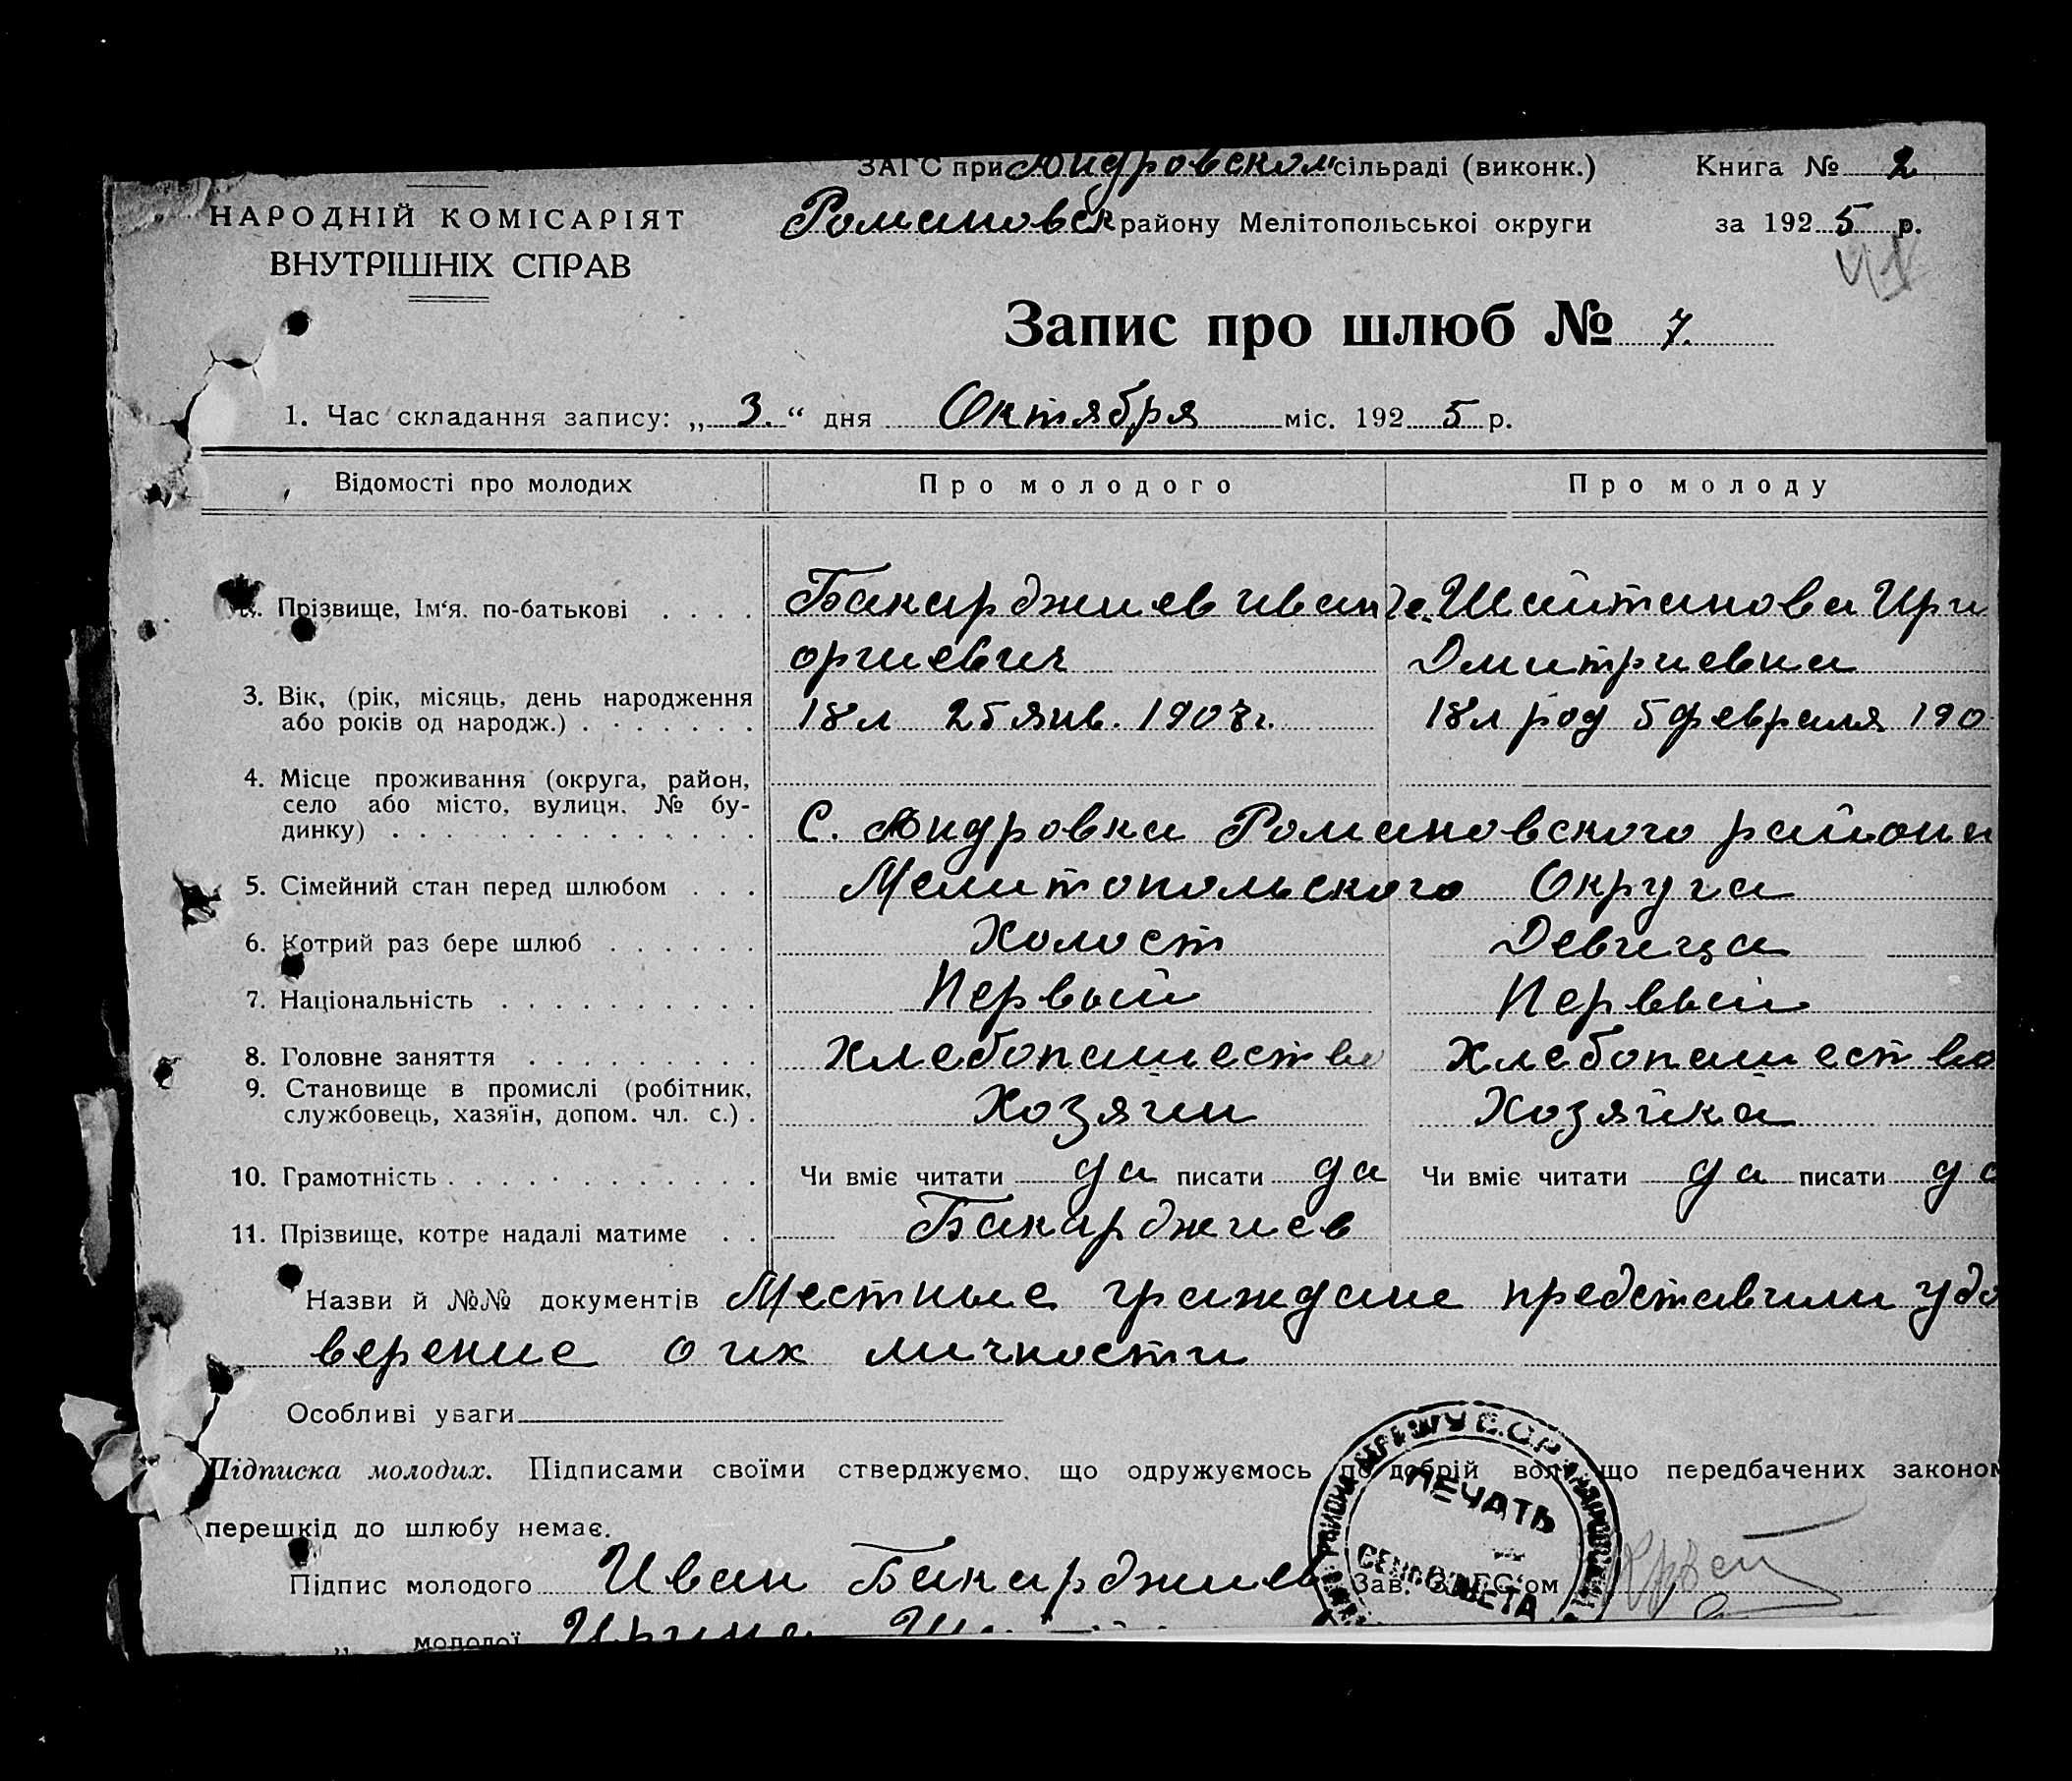 ЗАГС при Андровском сільраді (виконк.) Книга № 2
НАРОДНІЙ КОМІСАРІЯТ Романовск району Мелітопольськоі округи за 1925 р.
ВНУТРІШНІХ СПРАВ
Запис про шлюб № 7.
1. Час складання запису: „3.“ дня Октября міс. 1925 р.
Відомості про молодих Про молодого Про молоду
Прізвище, Ім‘я, по-батькові . . . . Бакарджиев иван Ге Шайтанова Ири
оргиевич Дмитриевна
3. Вік, (рік, місяць, день народження
або років од народж.) . . . . . . . 18 л 25 янв. 1907 г. 18 л род 5 февраля 190
4. Місце проживання (округа, район,
село або місто, вулиця, № бу-
динку) . . . . . . . . . . . . . С. Андровка Романовского района
5. Сімейний стан перед шлюбом . . . Мелитопольского Округа
6. Котрий раз бере шлюб . . . . . . Холост Девица
7. Національність . . . . . . . . . . Первый Первый
8. Головне заняття . . . . . . . . . Хлебопашество Хлебопашество
9. Становище в промислі (робітник,
службовець, хазяїн, допом. чл. с.) . Хозяин Хозяйка
10. Грамотність . . . . . . . . . . . . Чи вміє читати да писати да Чи вміє читати да писати да
11. Прізвище, котре надалі матиме . . Бакарджиев
Назви й №№ документів Местные граждане представили удо
верение о их личности
Особливі уваги
Підписка молодих. Підписами своїми стверджуємо, що одружуємось по добрій волі що передбачених законом
перешкід до шлюбу немає.
ПЕЧАТЬ
СЕЛЬСОВЕТА
Підпис молодого Иван Бакарджиев Зав. ЗАГС‘ом
„ молодої Ирина